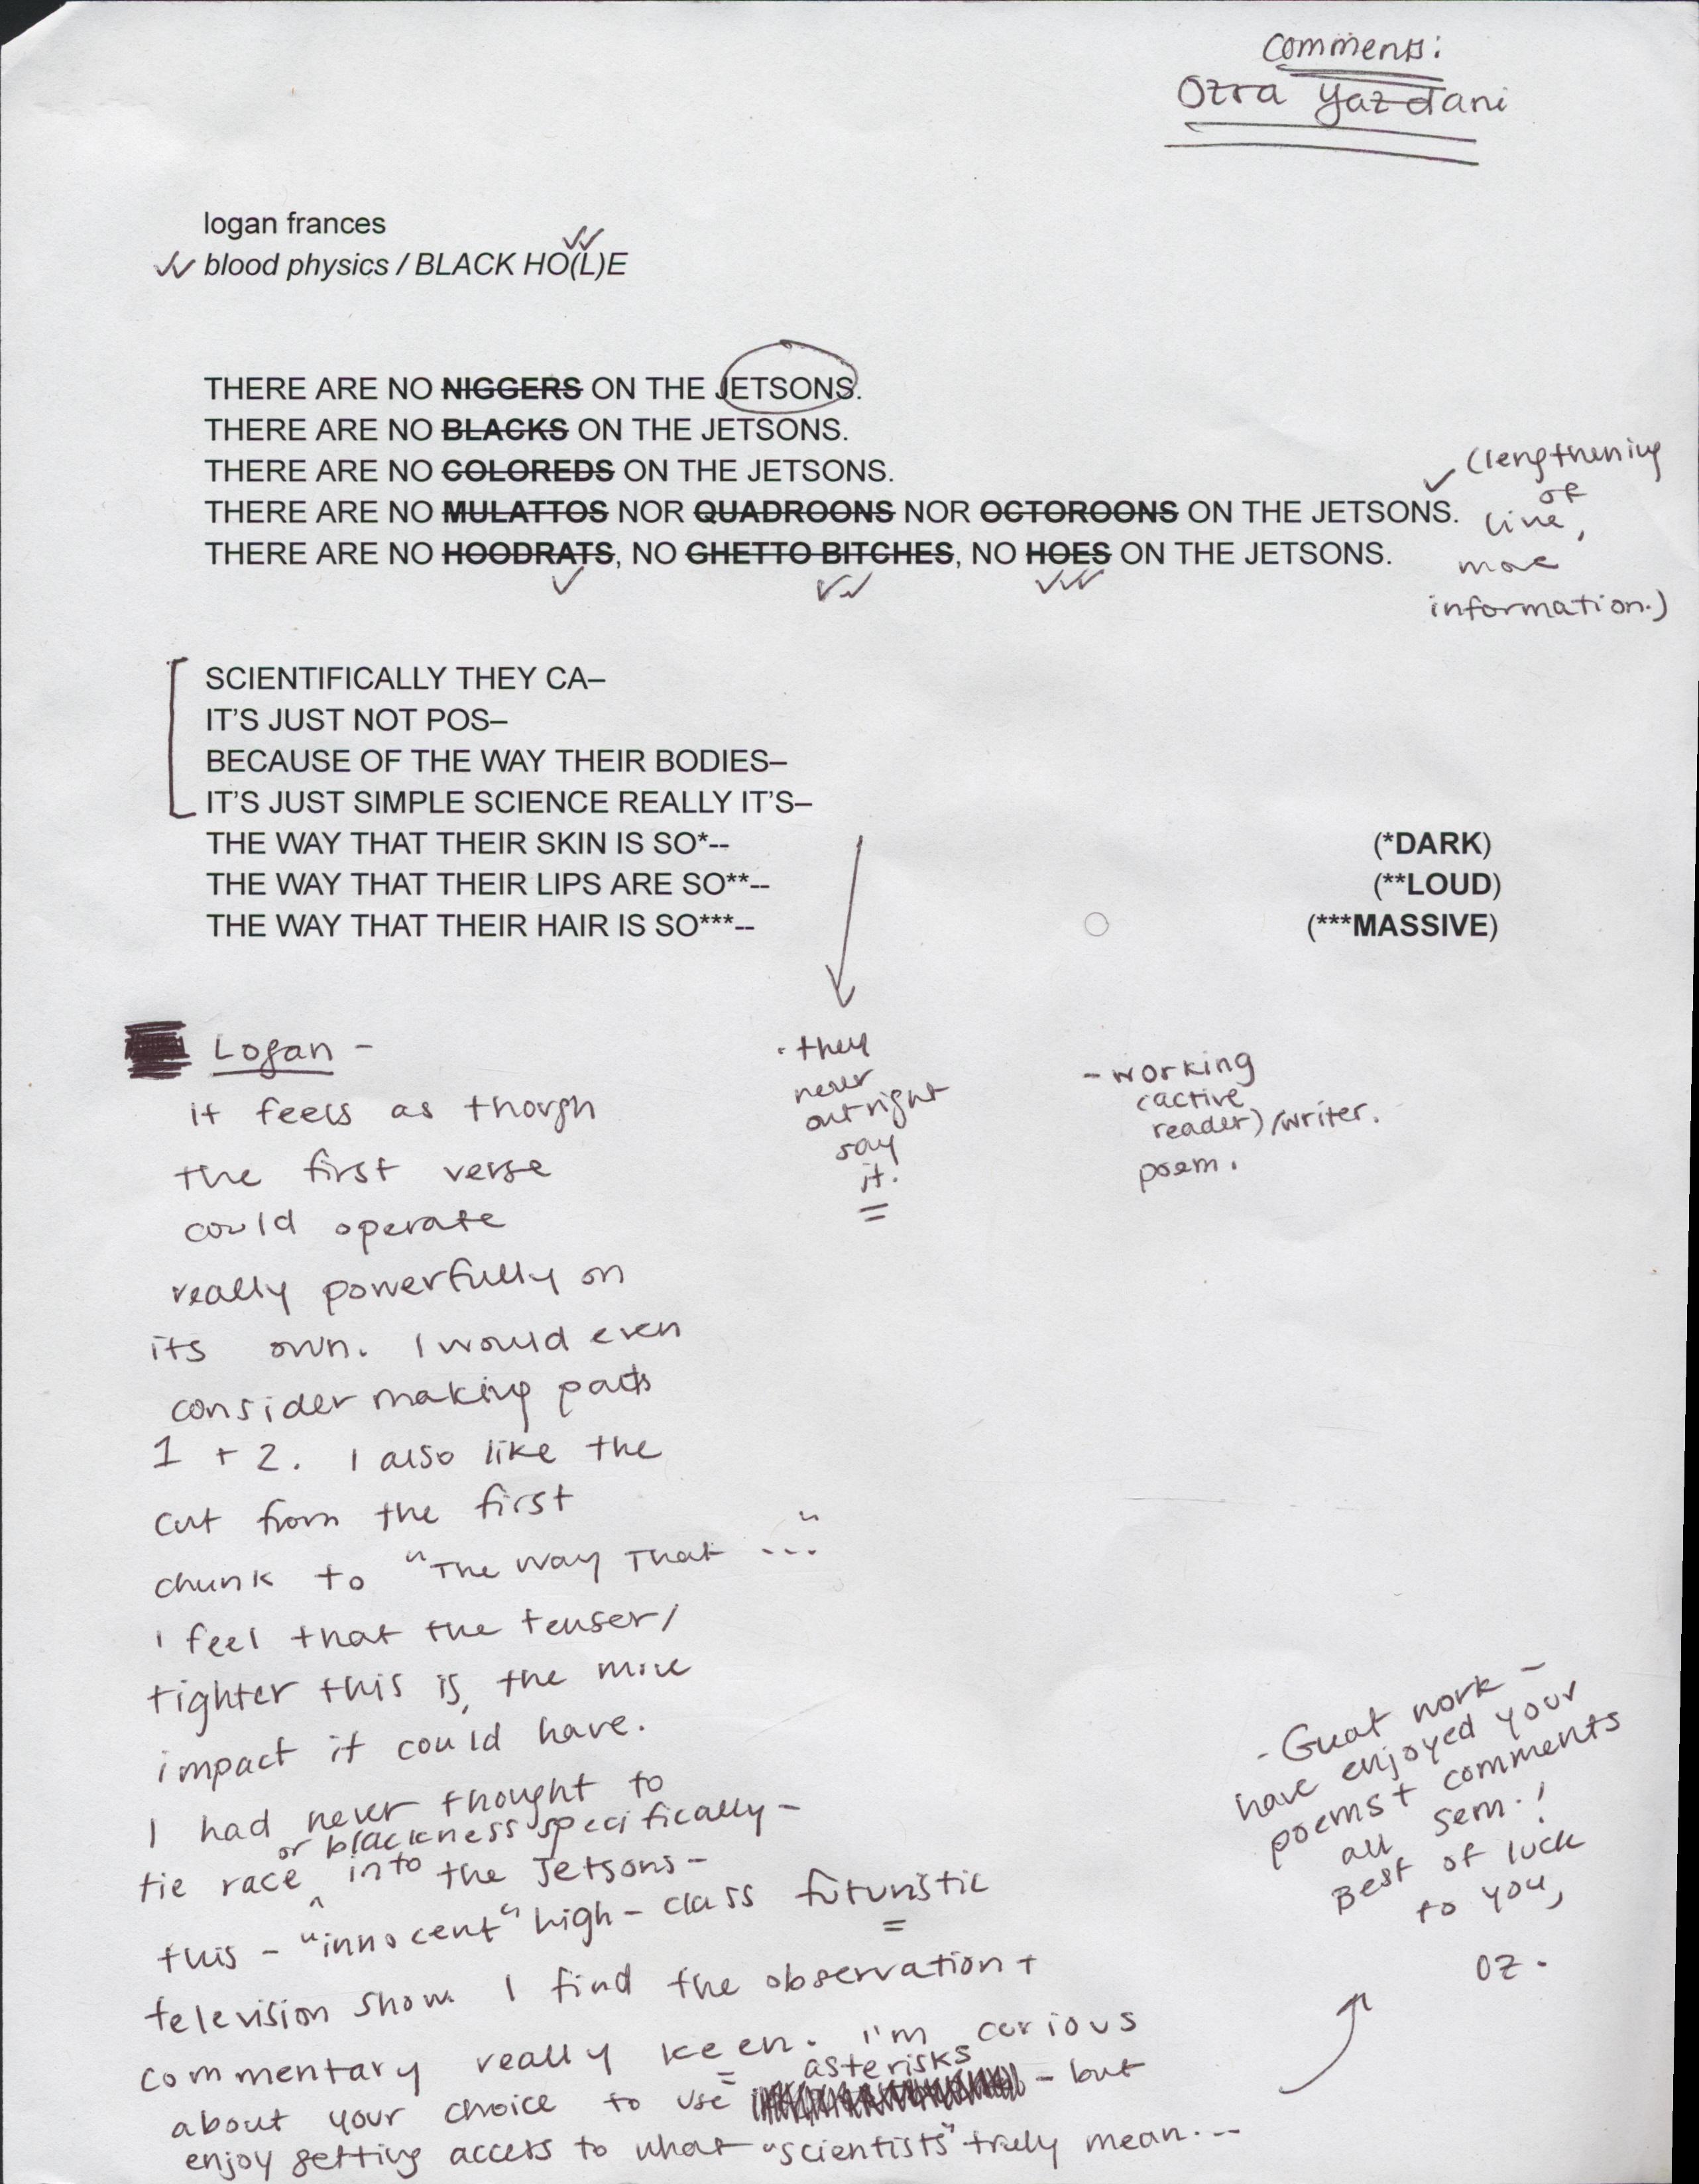 Comments:
Ozra Yazdani
logan frances
blood physics / BLACK HO(L)E
THERE ARE NO NIGGERS ON THE JETSONS.
THERE ARE NO BLACKS ON THE JETSONS.
THERE ARE NO COLOREDS ON THE JETSONS.
THERE ARE NO MULATTOS NOR QUADROONS NOR OCTOROONS ON THE JETSONS.
THERE ARE NO HOODRATS, NO GHETTO BITCHES, NO HOES ON THE JETSONS.
(lengthening
of
line,
more
information.)
SCIENTIFICALLY THEY CA–
IT'S JUST NOT POS–
BECAUSE OF THE WAY THEIR BODIES–
IT'S JUST SIMPLE SCIENCE REALLY IT'S–
THE WAY THAT THEIR SKIN IS SO*-- (*DARK)
THE WAY THAT THEIR LIPS ARE SO**-- (**LOUD)
THE WAY THAT THEIR HAIR IS SO***-- (***MASSIVE)
· they
never
outright
say
it.
- working
(active
reader)/writer.
poem.
Logan -
it feels as though
the first verse
could operate
really powerfully on
its own. I would even
consider making parts
1 + 2. I also like the
cut from the first
chunk to "The Way That ..."
I feel that the tenser/
tighter this is, the more
impact it could have.
I had never thought to
or blackness specifically -
tie race ^ into the Jetsons -
this - "innocent" high-class futuristic
television show. I find the observation +
commentary really keen. I'm curious
asterisks
about your choice to use - but
enjoy getting access to what "scientists" truly mean...
- Great work -
have enjoyed your
poems + comments
all sem.!
Best of luck
to you,
OZ.